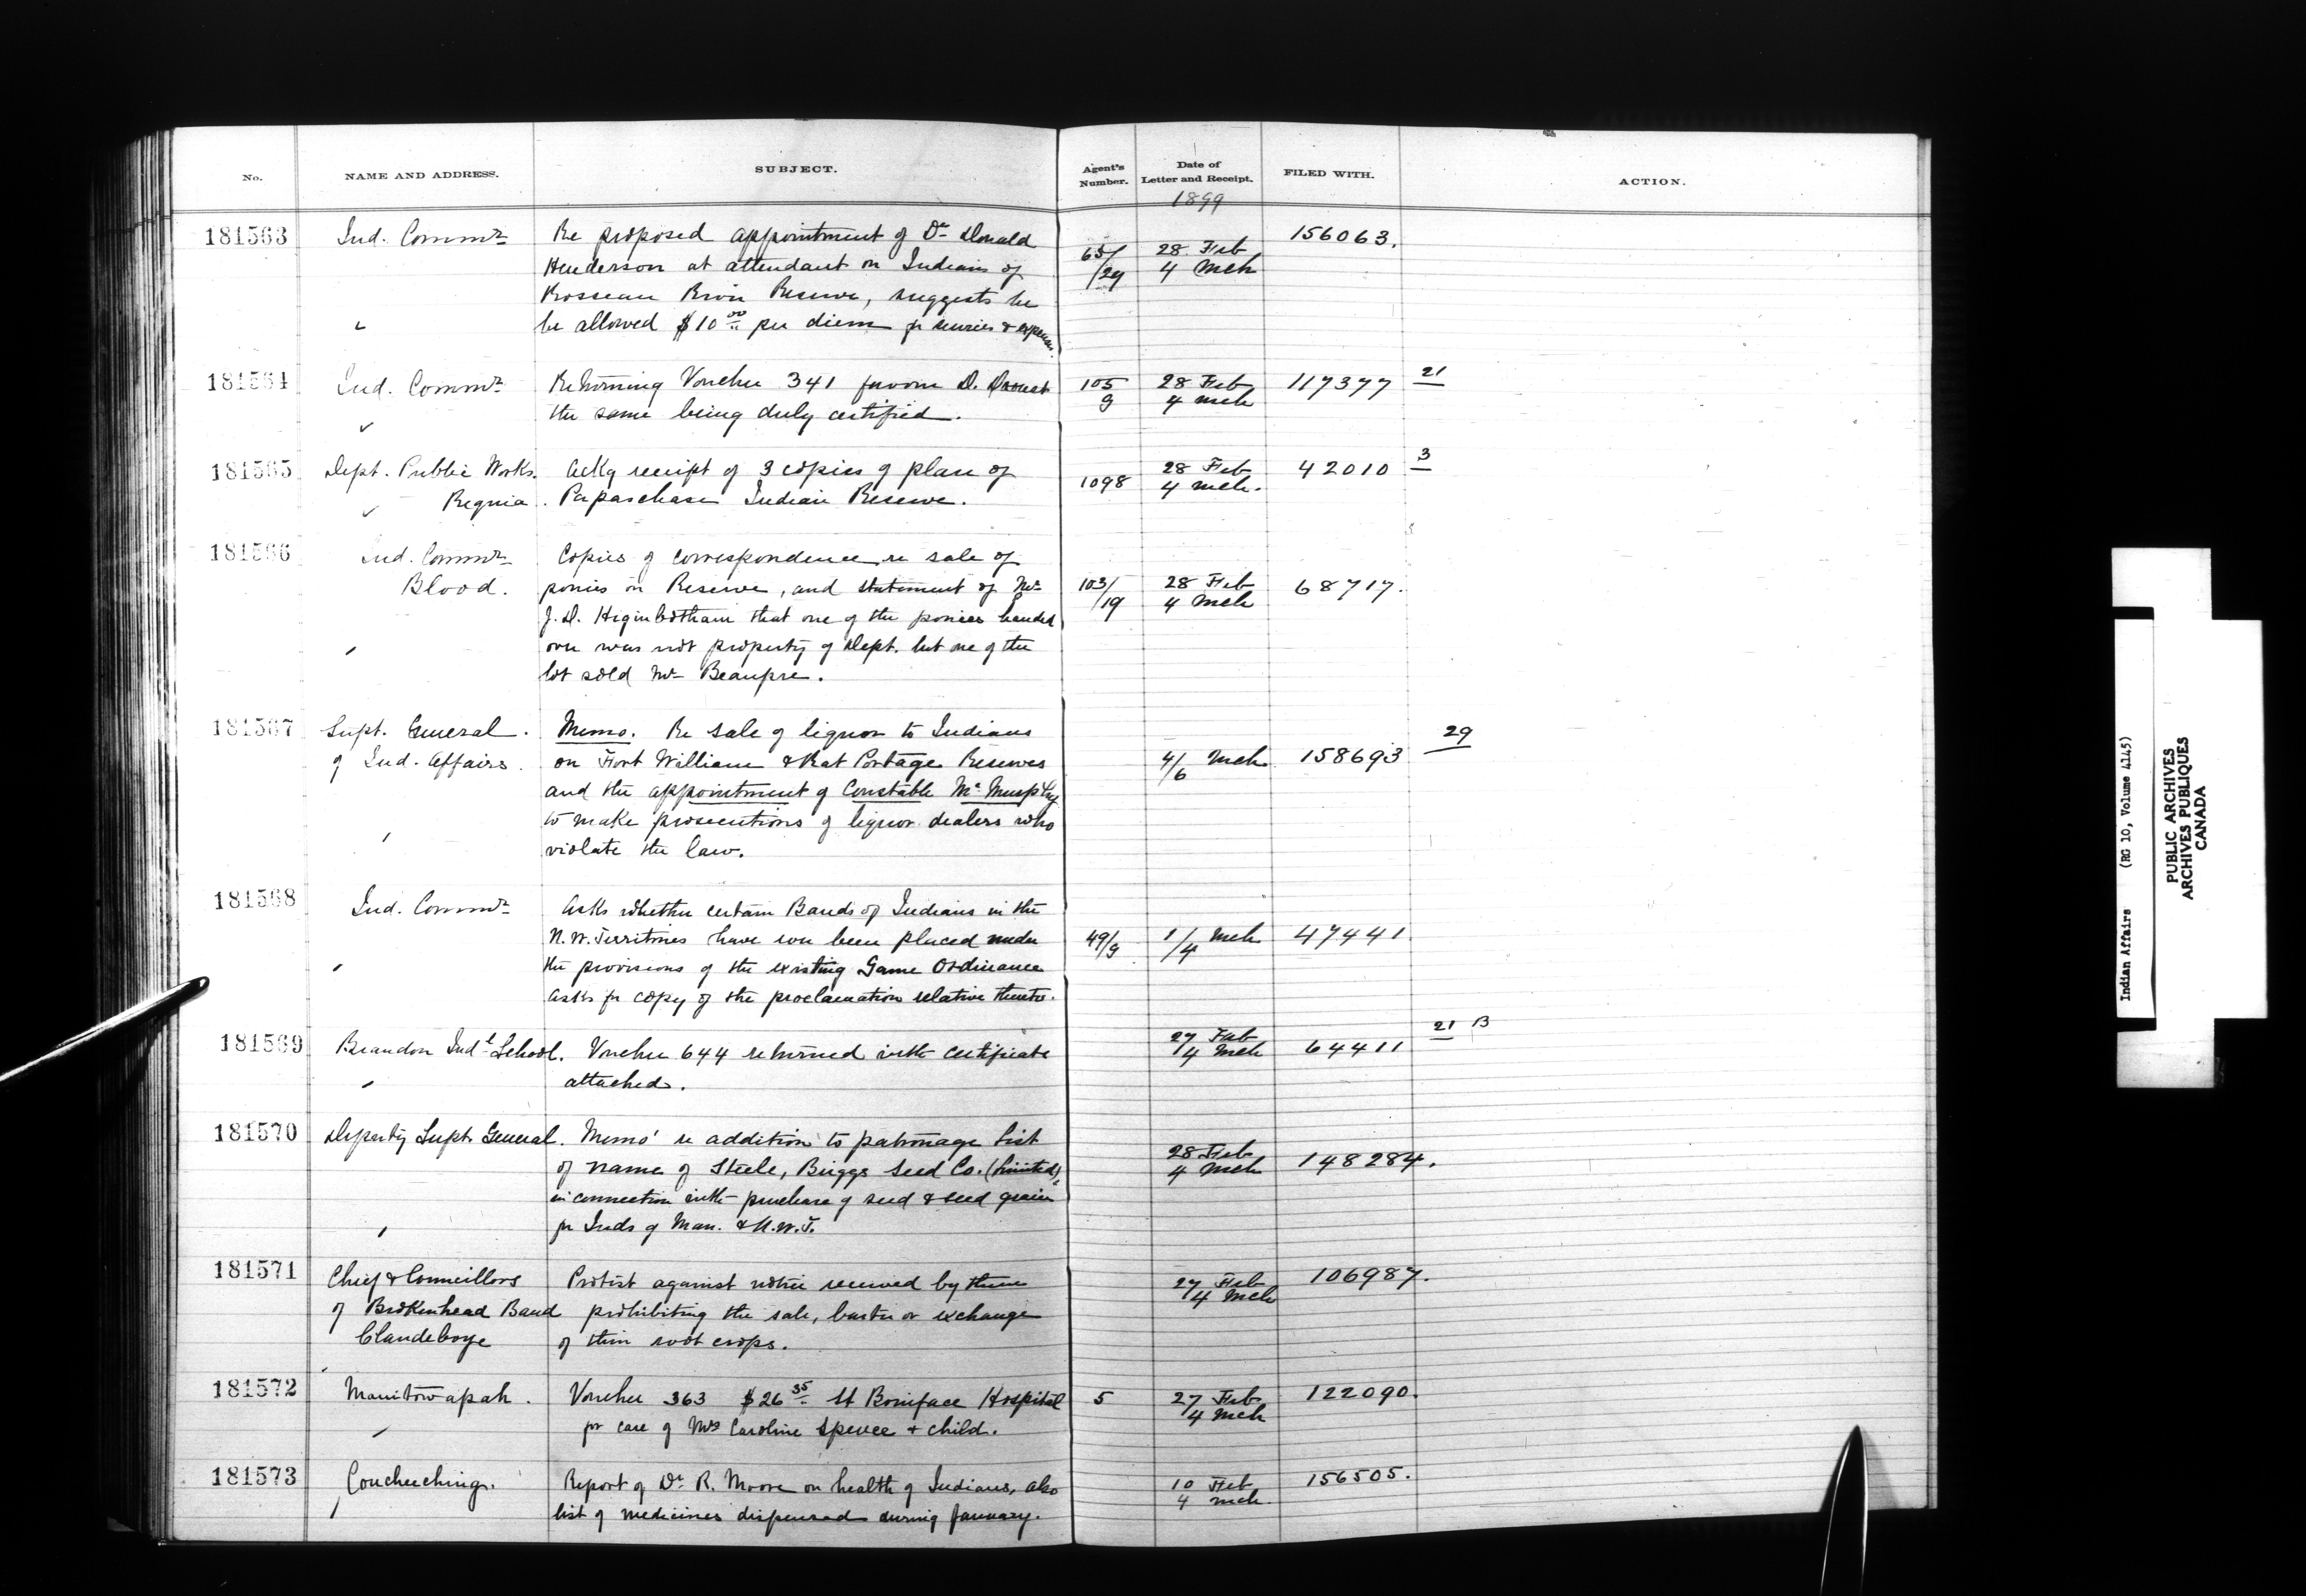 No. NAME AND ADDRESS. SUBJECT. Agent's Number. Date of Letter and Receipt. FILED WITH. ACTION.
1899
181563 Ind. Commr Re proposed appointment of Dr Donald 65/29 28 Feb 4 Mch 156063.
Henderson at attendant on Indians of
Rosseau River Reserve, suggests he
be allowed $10.00 per diem for services & expenses.
181564 Ind. Commr Returning Voucher 341 favour D. 105 9 28 Feb 4 Mch 117377 21
the same being duly certified.
181565 Dept. Public Works. Ackg receipt of 3 copies of plan of 1098 28 Feb 4 Mch. 42010 3
Regina. Papaschase Indian Reserve.
181566 Ind. Commr Copies of correspondence re sale of
Blood. ponies on Reserve, and statement of Mr 103/19 28 Feb 4 Mch 68717.
J. D. Higinbotham that one of the ponies handed
over was not property of Dept. but one of the
lot sold Mr Beaupre.
181567 Supt. General Memo. Re sale of liquor to Indians 29
of Ind. Affairs. on Fort William & Rat Portage Reserves 4/6 Mch 158693
and the appointment of Constable Mc Murphy
to make prosecutions of liquor dealers who
violate the law.
181568 Ind. Commr Asks whether certain Bands of Indians in the
N.W. Territories have been placed under 49/9 1/4 Mch 47441.
the provisions of the existing Game Ordinance
asks for copy of the proclamation relative thereto.
181569 Brandon Indl School. Voucher 644 returned with certificate 27 Feb 4 Mch 64411 21 B
attached.
181570 Deputy Supt. General. Memo re addition to patronage list
of name of Steele, Briggs Seed Co. (Limited), 28 Feb 4 Mch 148284.
in connection with purchase of seed & seed grain
for Inds of Man. & N.W.T.
181571 Chief & Councillors Protest against notice received by them 27 Feb 4 Mch 106987.
of Brokenhead Band prohibiting the sale, barter or exchange
Clandeboye of their root crops.
181572 Manitowapah. Voucher 363 $26.35 St Boniface Hospital 5 27 Feb 4 Mch 122090.
for care of Mrs Caroline Spence & child.
181573 Coucheeching. Report of Dr. R. Moore on health of Indians, also 10 Feb 4 Mch. 156505.
list of medicines dispensed during January.
Indian Affairs (RG 10, Volume 4145)
PUBLIC ARCHIVES
ARCHIVES PUBLIQUES
CANADA